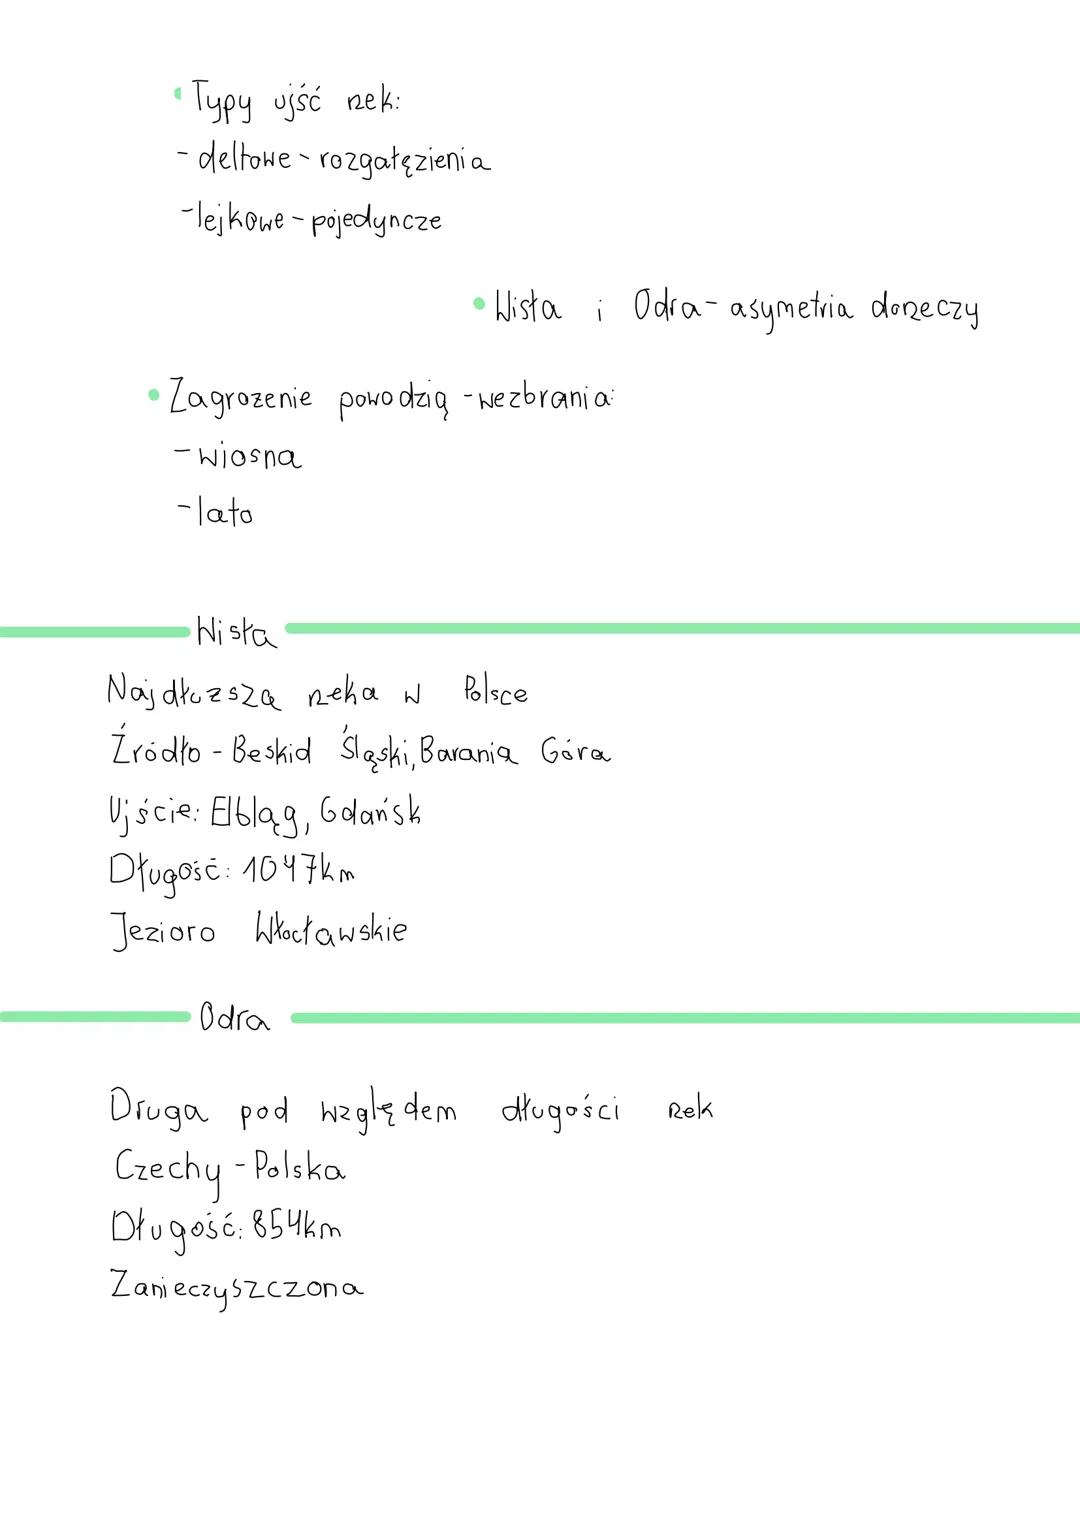 • Typy ujść rzek:
- deltowe - rozgałęzienia
- lejkowe - pojedyncze
• Wisła i Odra - asymetria dorzeczy
• Zagrożenie powodzią - wezbrania:
- wiosna
- lato
Wisła
Najdłuższa rzeka w Polsce
Źródło - Beskid Śląski, Barania Góra
Ujście: Elbląg, Gdańsk
Długość: 1047km
Jezioro Włocławskie
Odra
Druga pod względem długości rzek
Czechy - Polska
Długość: 854km
Zanieczyszczona